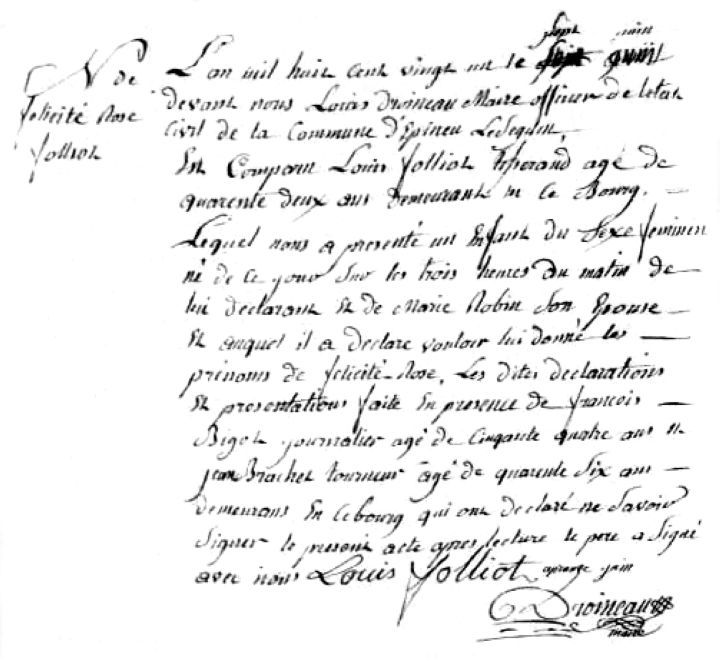 N de
felicité Rose
folliot
sept juin
L'an mil huit cent vingt un le
devant nous Louis Droineau Maire officier de letat
Civil de la Commune d'Epineu Leseguin,
Est Comparu Louis folliot tisserand agé de
quarente deux ans demeurant en ce Bourg. —
Lequel nous a presenté un Enfant du Sexe feminin
né de ce jour Sur les trois heures du matin de
lui declarant Et de Marie Robin Son Epouse —
Et auquel il a declare vouloir lui donné les —
prénoms de felicité-Rose, Les dites declarations
Et presentations faite En presence de francois —
Bigot journalier agé de Cinqante quatre ans Et
jean Brachet tourneur agé de quarente Six ans —
demeurans En cebourg qui ont declaré ne Savoir
Signer le present acte apres lecture le pere a Signé
avec nous Louis folliot juin
Droineau
maire